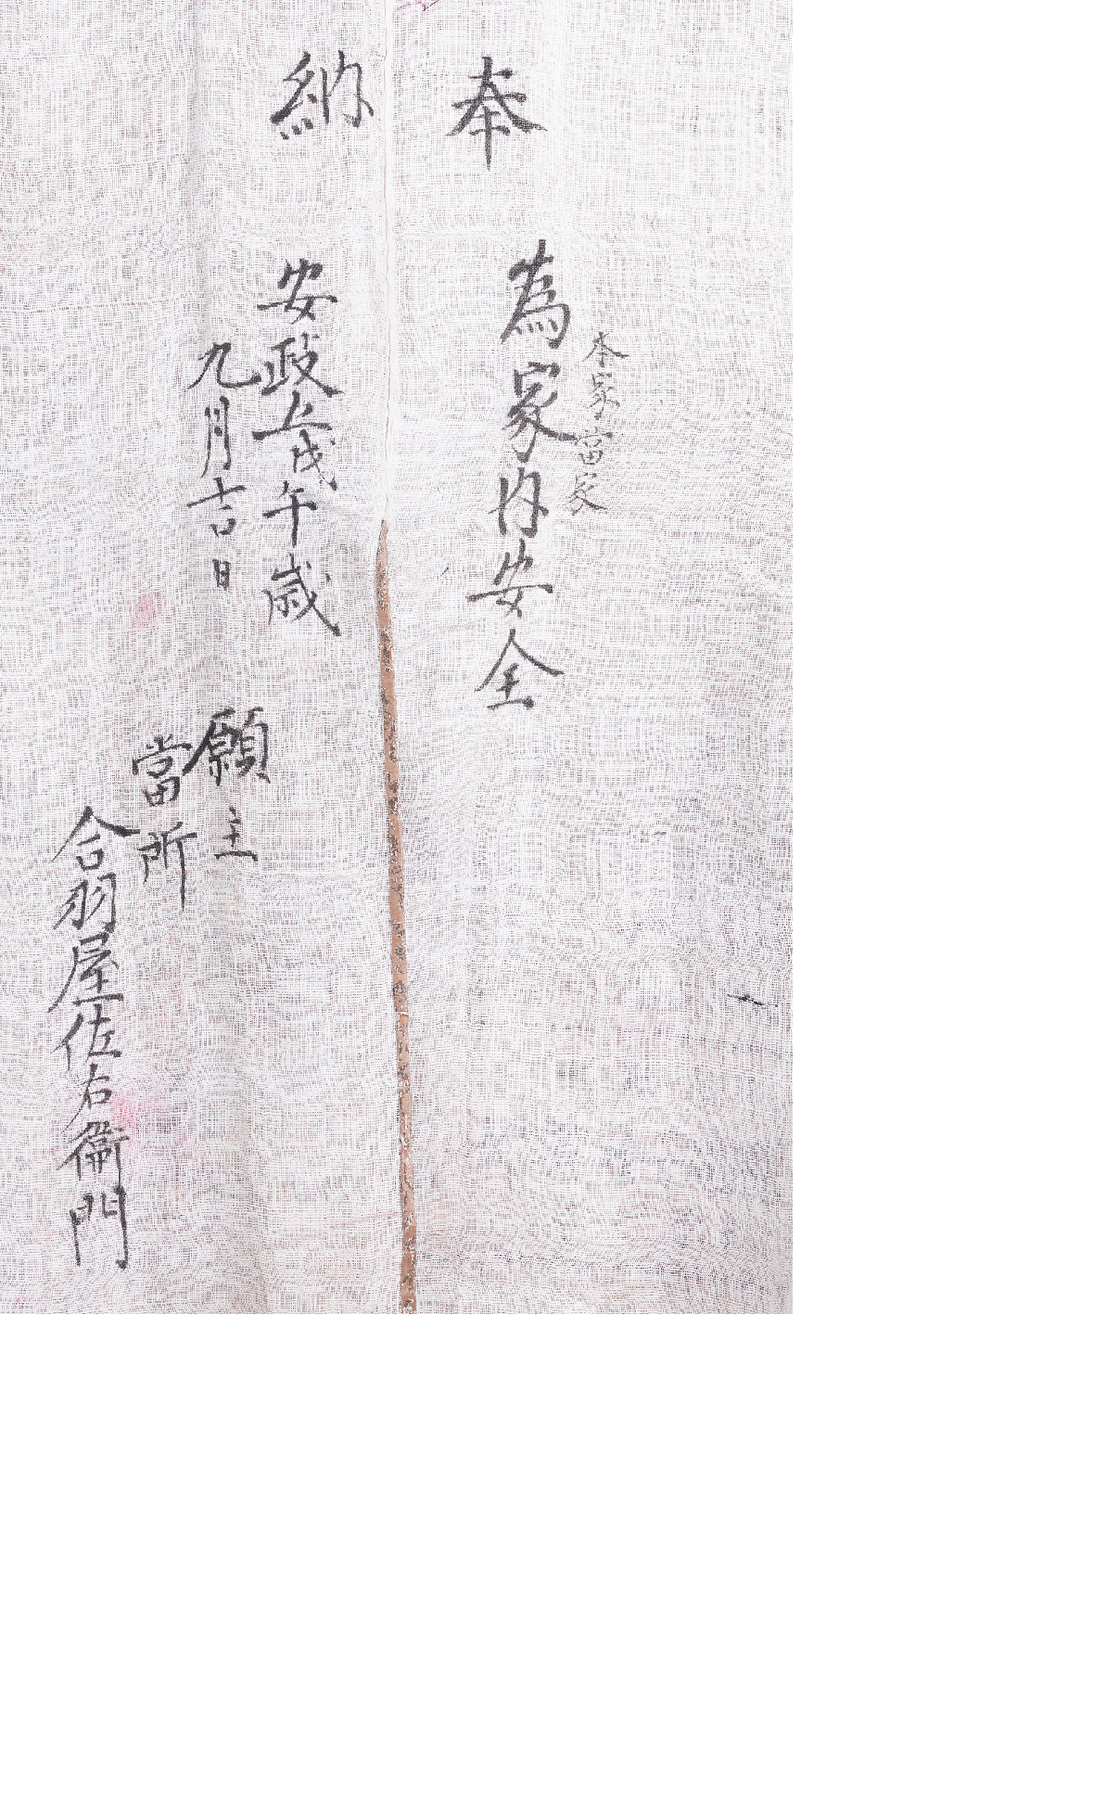 奉納
本家當家
為家内安全
安政五戊午歳
九月吉日
願主
當所
合羽屋佐右衛門